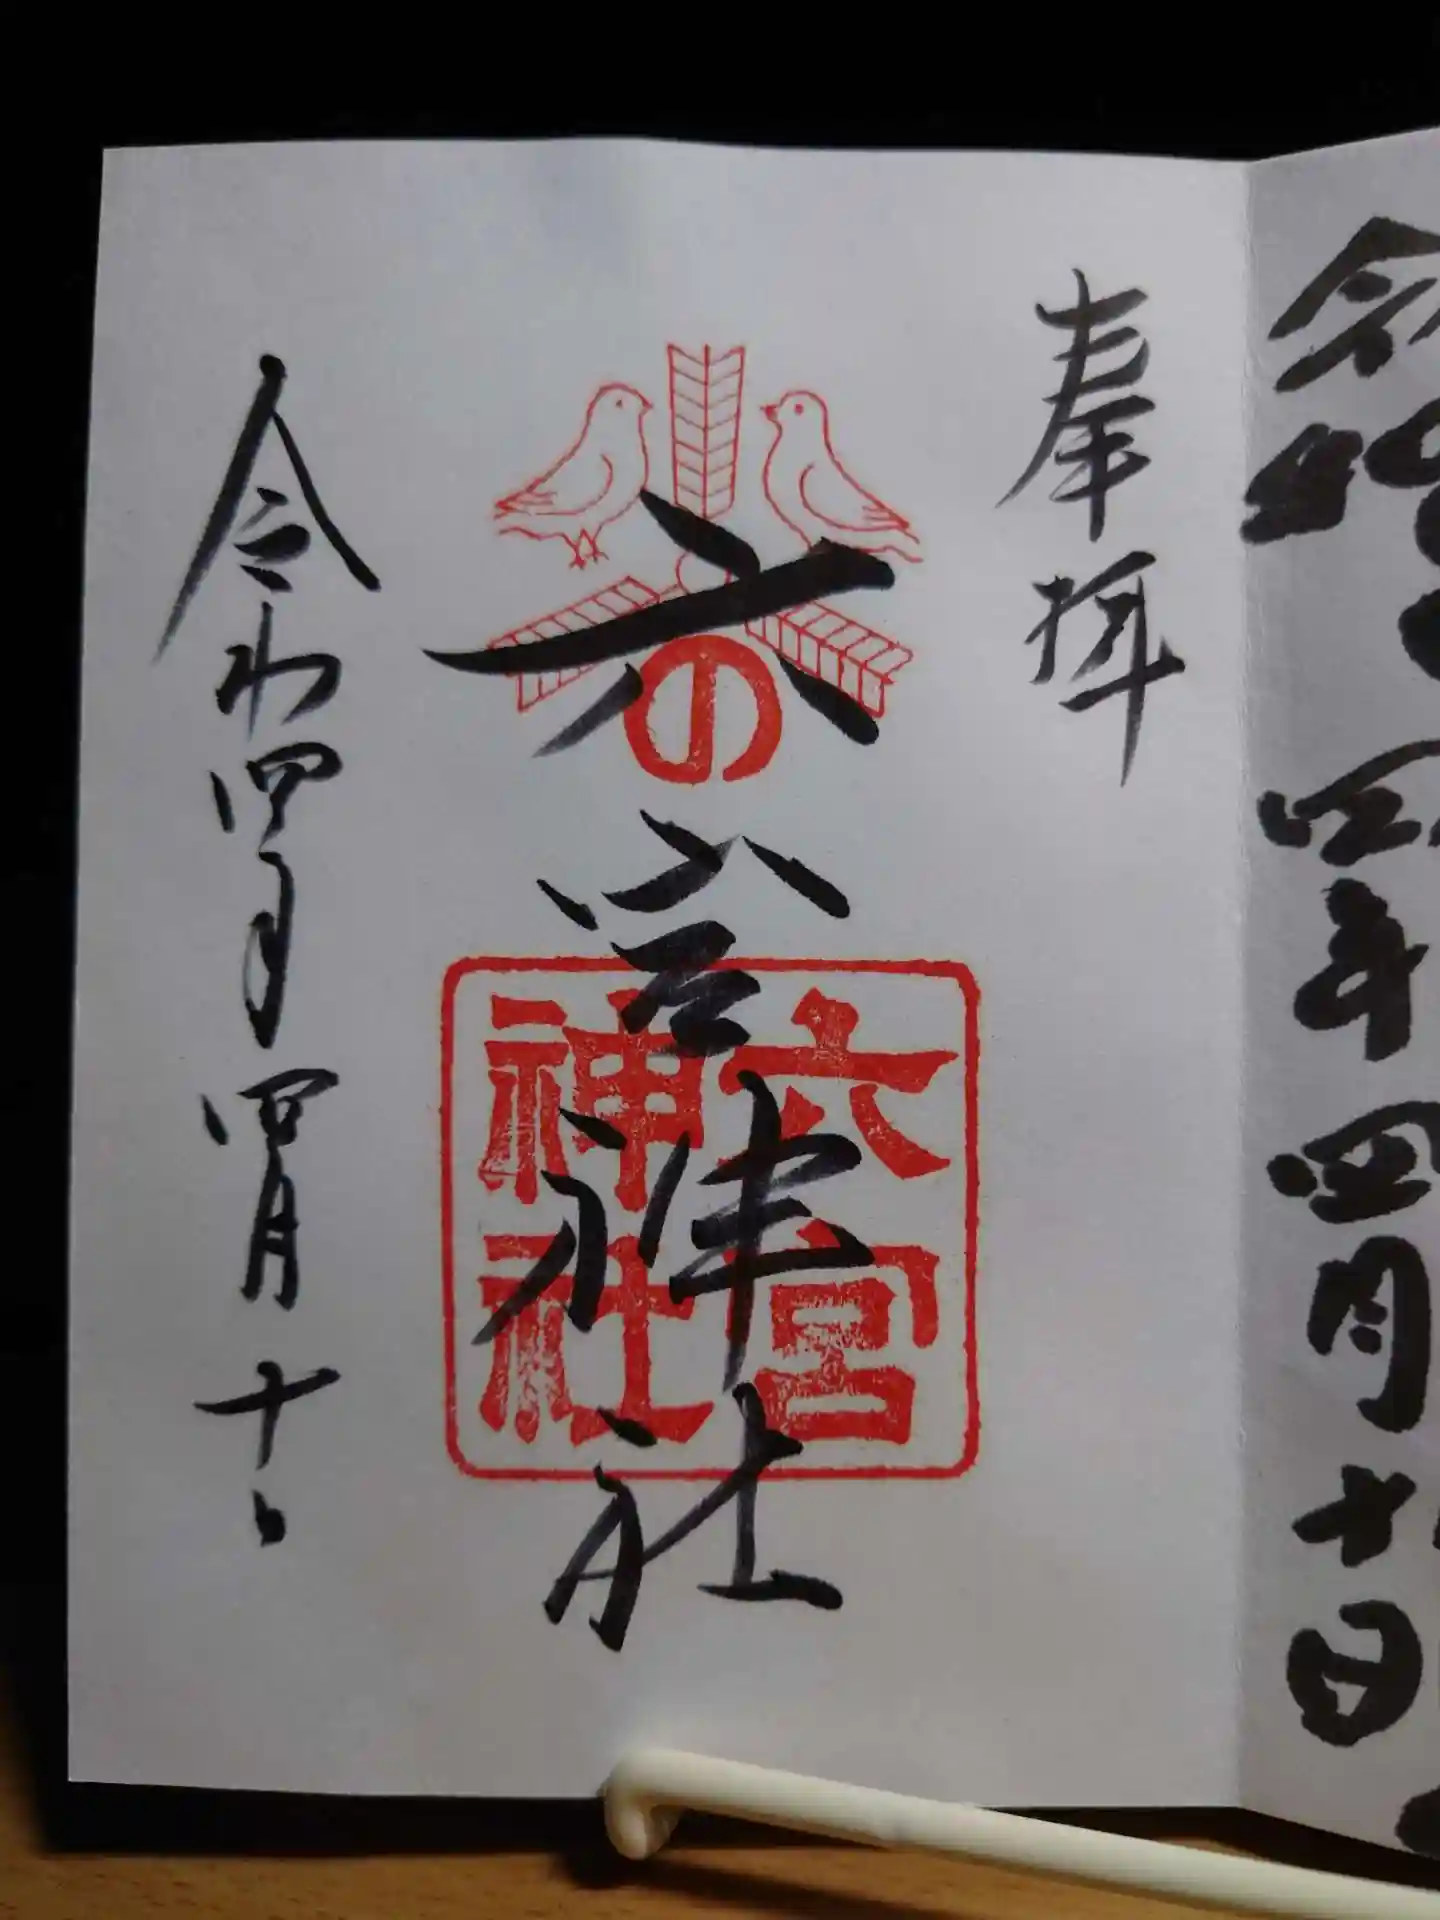 奉拝
六の宮神社
六宮
神社
令和四年四月十日
四年四月十
日